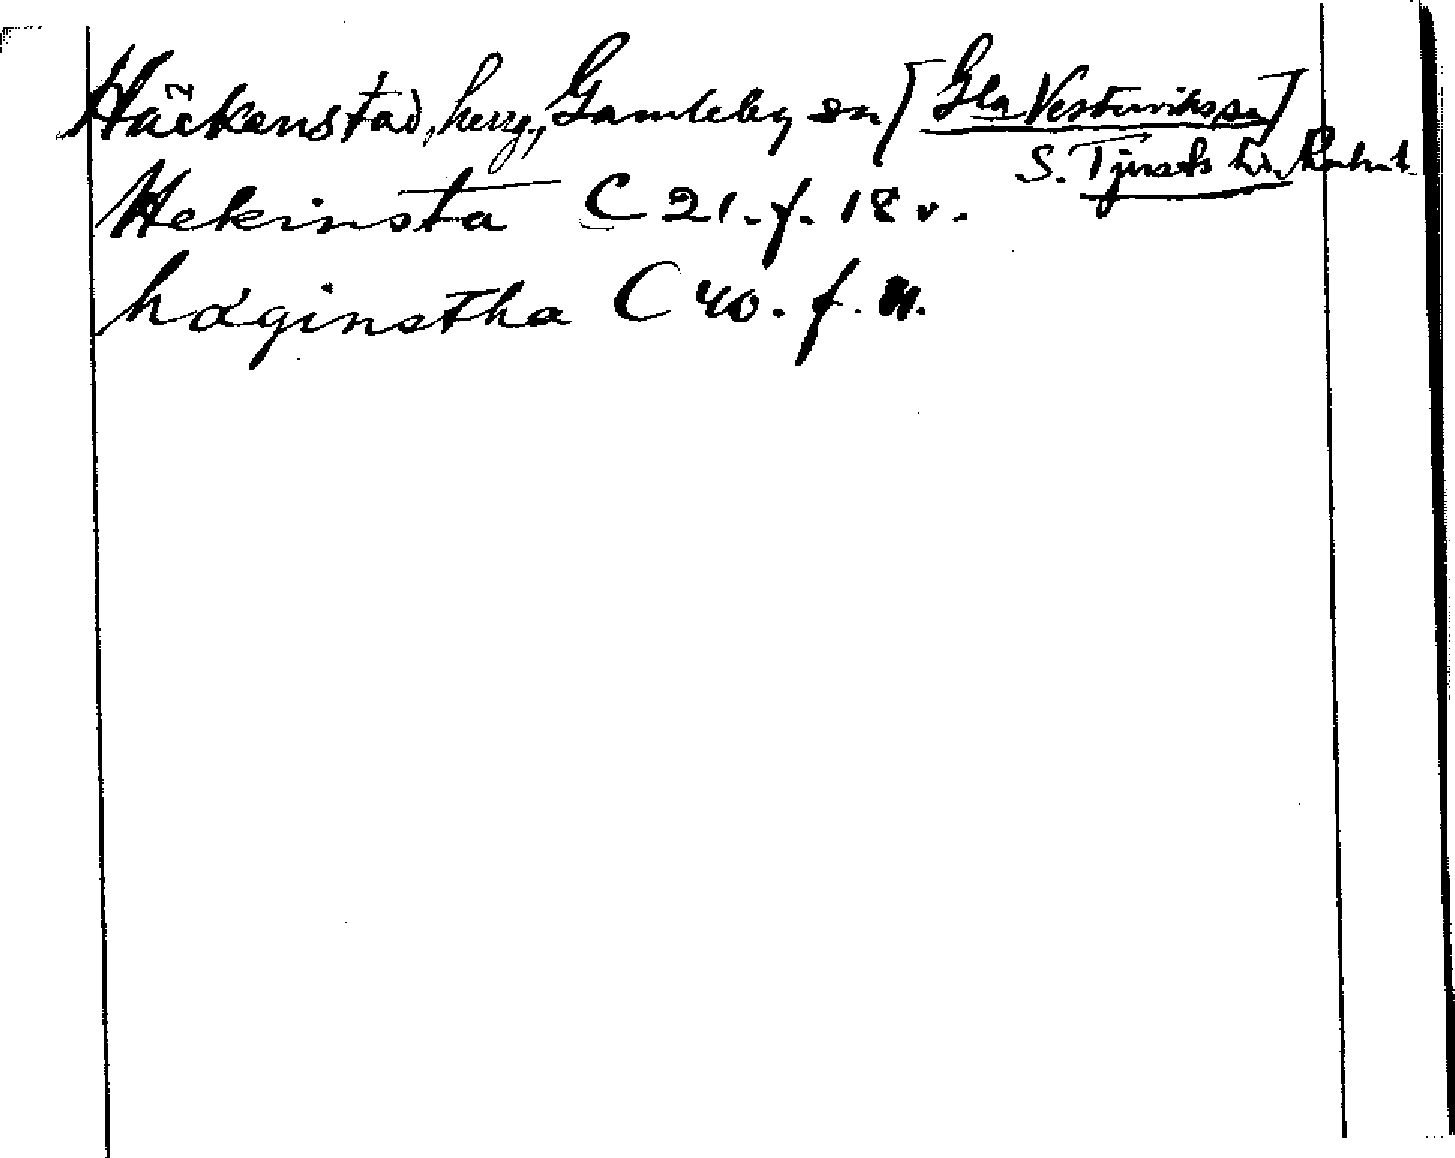 Häckenstad, herrg., Gamleby sn [Gla Vesterviks sn]
S. Tjusts hd, Kalm. l.
Hekinsta C 21. f. 18 v.
håginstha C 40. f.